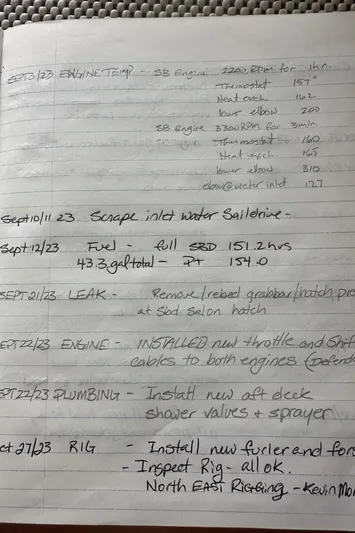 SEPT 3/23 ENGINE Temp - SB Engine 2200 RPM for 1hr.
Thermostat 157°
Heat exch. 162
lower elbow 200
SB Engine 3300 RPM for 3min
Thermostat 160
Heat exch 165
lower elbow 310
elbow@water inlet 127
Sept 10/11 23 Scrape inlet water Saildrive -
Sept 12/23 Fuel - full SBD 151.2 hrs
43.3 gal total - Pt 154.0
SEPT 21/23 LEAK - Remove/rebed grabbar/hatch
at Sbd Salon hatch
SEPT 22/23 ENGINE - INSTALLED new throttle and Shift
cables to both engines
SEPT 22/23 PLUMBING - Install new aft deck
shower valves + sprayer
Oct 27/23 RIG - Install new furler and
- Inspect Rig - all ok.
North EAST Rigging - Kevin